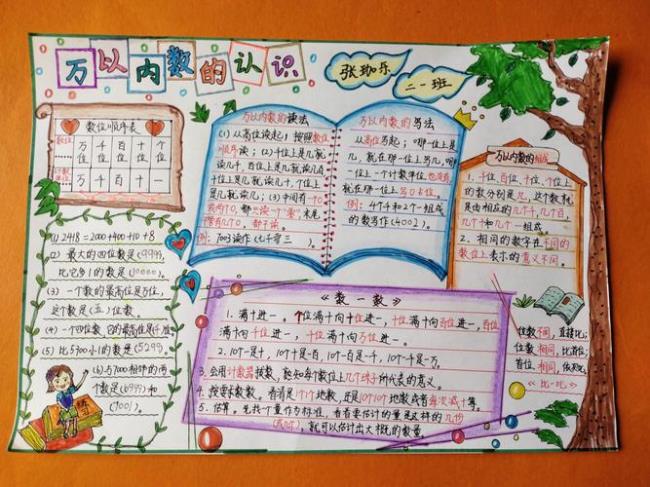 万以内数的认识
张珈乐
二一班
数位顺序表
数位
万位 千位 百位 十位 个位
计数单位
万 千 百 十 一
(1) 2418=2000+400+10+8
(2) 最大的四位数是(9999),
比它多1的数是(10000)。
(3) 一个数的最高位是万位,
这个数是(五)位数。
(4) 一个四位数,它的最高位是千位
(5) 比5300小1的数是(5299).
(6)与7000相邻的两
个数是(6999)和
(7001).
万以内数的读法
(1)从高位读起,按照数位
顺序读;(2)千位上是几就
读几千,百位上是几就读几百
十位上是几就读几十,个位上
是几就读几;(3)中间有一个0
或两个0,都只读一个"零",末尾
不管有几个0,都不读。
例:7003读作(七千零三)。
万以内数的写法
从高位写起;哪一位上是
几,就在那一位上写几,哪一
位上一个计数单位也没有
就在哪一位上写0占位。
例:4个千和2个一组成
的数写作(4002)。
万以内数的组成
1. 千位、百位、十位、个位上
的数分别是几,这个数就
是由相应的几个千,几个百,
几个十和几个一组成。
2. 相同的数字在不同的
数位上表示的意义不同。
《数一数》
1. 满十进一。个位满十向十位进一,十位满十向百位进一,百位
满十向千位进一,千位满十向万位进一。
2. 10个一是十,10个十是百,10个一百是一千,10个一千是一万。
3. 会用计数器拨数,能知每个数位上几个珠子所代表的意义。
4. 按要求数数。看清是1个1个地数,还是10个10个地数或者每次减少等。
5. 估算。先找一量作为标准,看看要估计的量是这样的几份
就可以估计出大概的数量
位数不同,直接比;
位数相同,比首位;
首位相同,依次比。
《比一比》